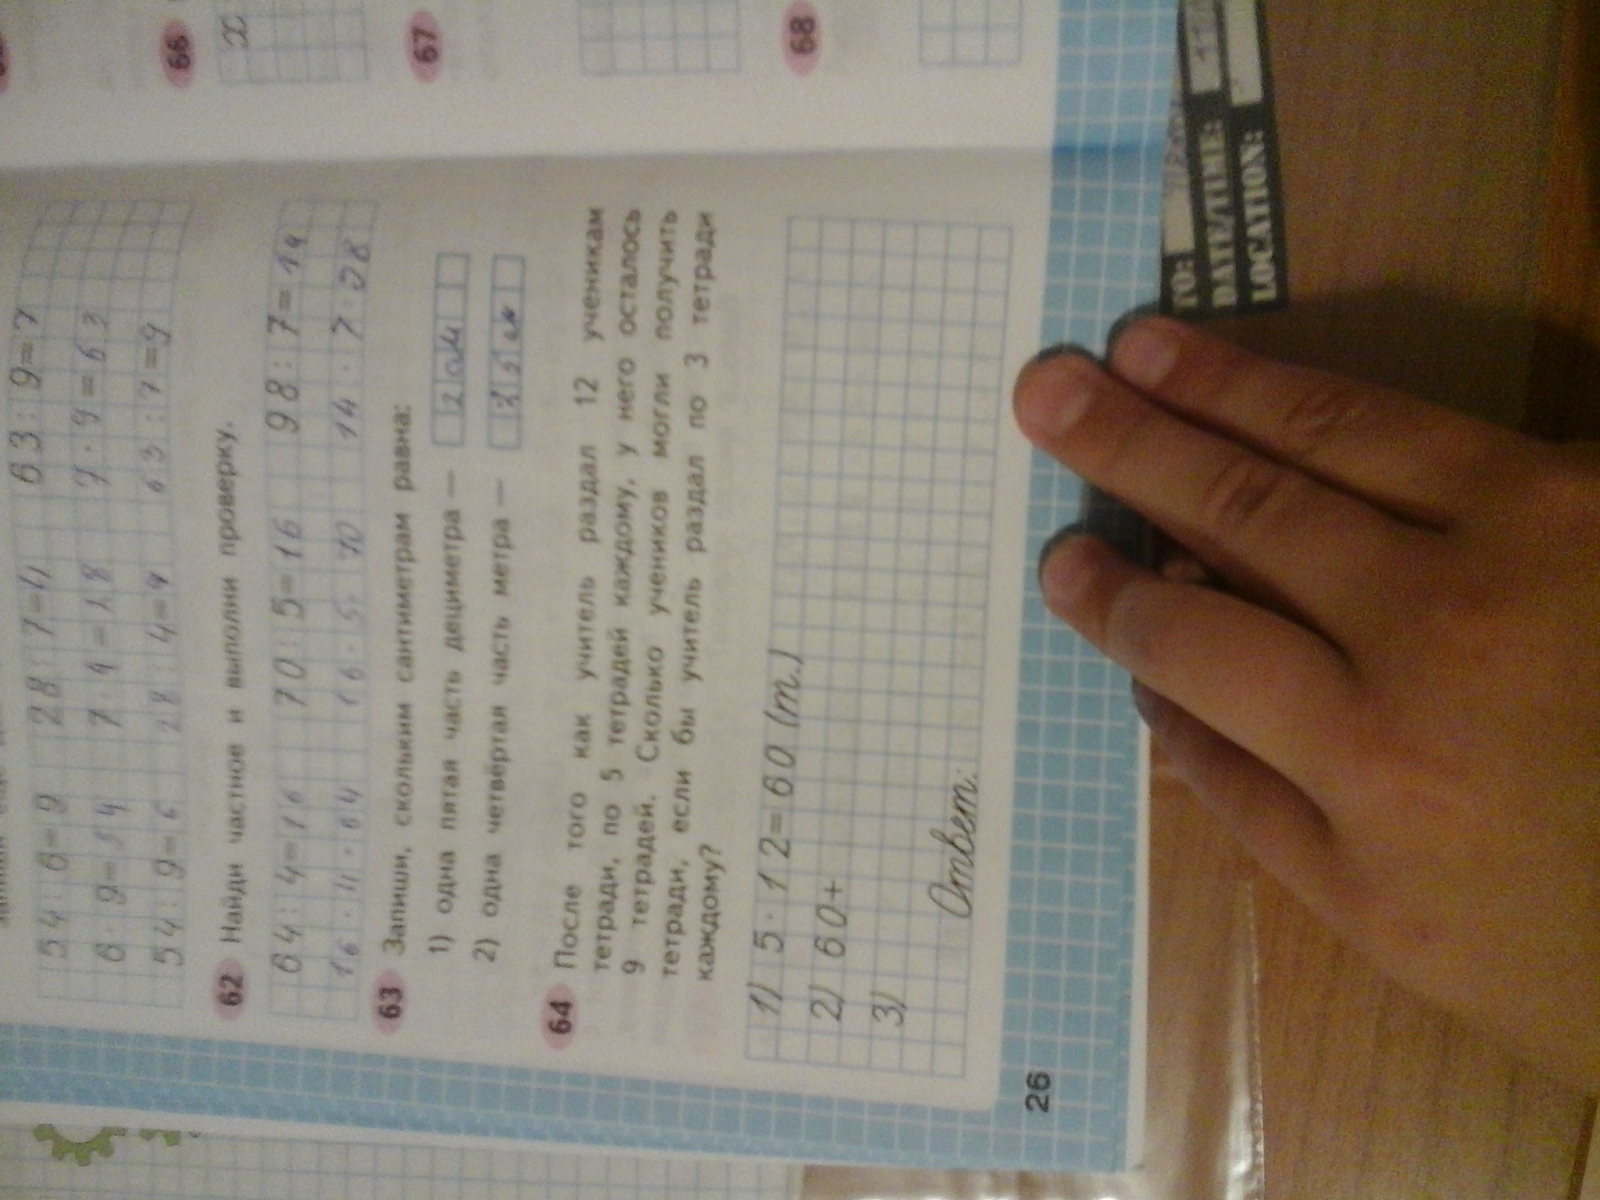 63:9=7
54:6=9 28:7=4
6·9=54 7·4=28 7·9=63
54:9=6 28:4=7 63:7=9
62 Найди частное и выполни проверку.
64:4=16 70:5=16 98:7=14
16·4·64 16·5· 70 14·7·98
63 Запиши, скольким сантиметрам равна:
1) одна пятая часть дециметра — 2 см
2) одна четвёртая часть метра —
64 После того как учитель раздал 12 ученикам
тетради, по 5 тетрадей каждому, у него осталось
9 тетрадей. Сколько учеников могли получить
тетради, если бы учитель раздал по 3 тетради
каждому?
1) 5·12=60 (т.)
2) 60+
3)
Ответ:
26
66
x
67
68
TO:
DATE/TIME:
LOCATION: